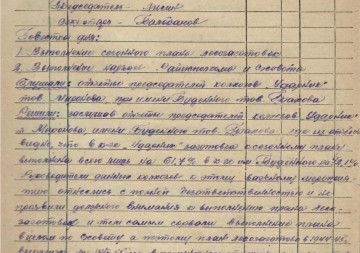 Председатель - Лисин
секретарь - Балобанов
Повестка дня:
1. Выполнение сезонного плана лесозаготовок
2. Выполнение нарядов Райисполкома и С/совета
Слушали: отчёты председателей колхозов "Ударник"
тов. Миронова, при имени Буденного тов.
Решили: заслушав отчёты председателей колхозов "Ударник"
Миронова, имени Буденного тов. что из отчёта
видно, что в к-зе "Ударник" заготовка к сезонному плану
выполнена всего лишь на 61,4% в к-зе им Буденного на 72,1%
Руководители данных колхозов к этому важному мероприя-
тию отнеслись с полной безответственностью и не
проявили должного внимания к выполнению плана лесо-
заготовок и тем самым сковали выполнение плана
в целом по С/совету а потому план лесозаготовок в 1944-45г.